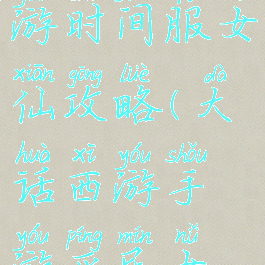 游时间服女
xiān gōng lüè dà
仙攻略(大
huà xī yóu shǒu
话西游手
yóu píng mín nǚ
游平民女